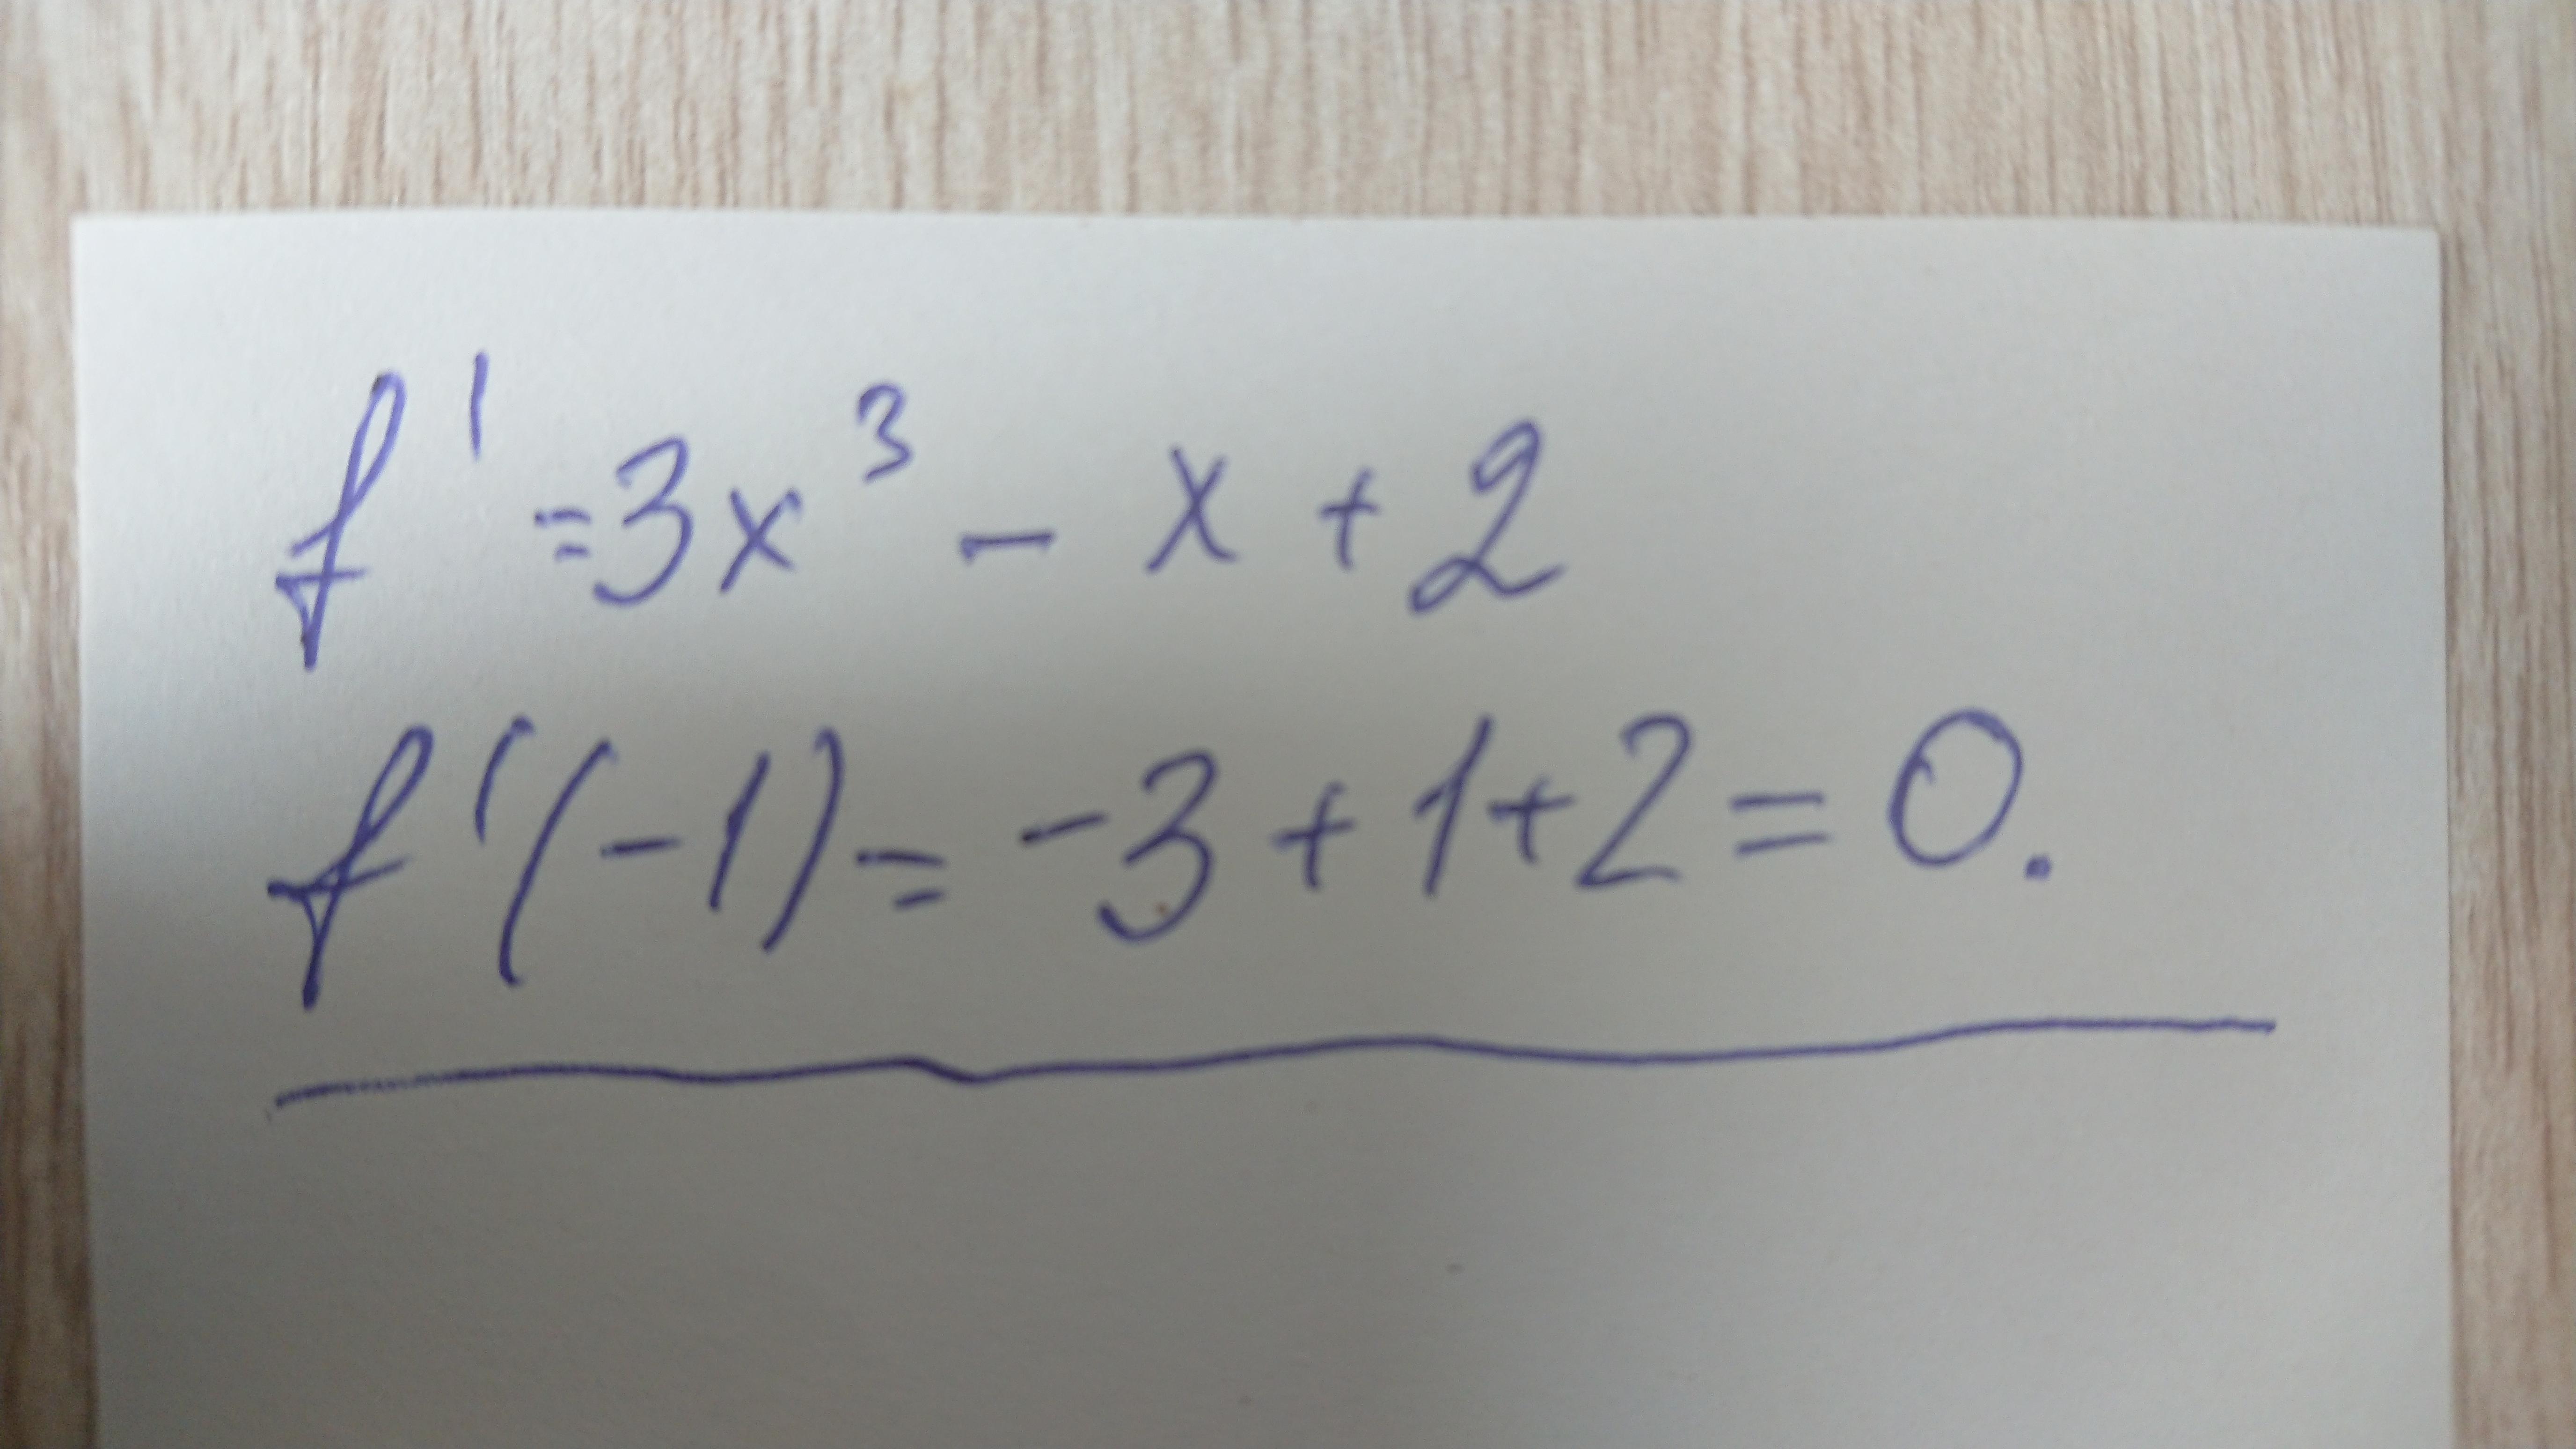 f' = 3x³ - x + 2
f'(-1) = -3 + 1 + 2 = 0.